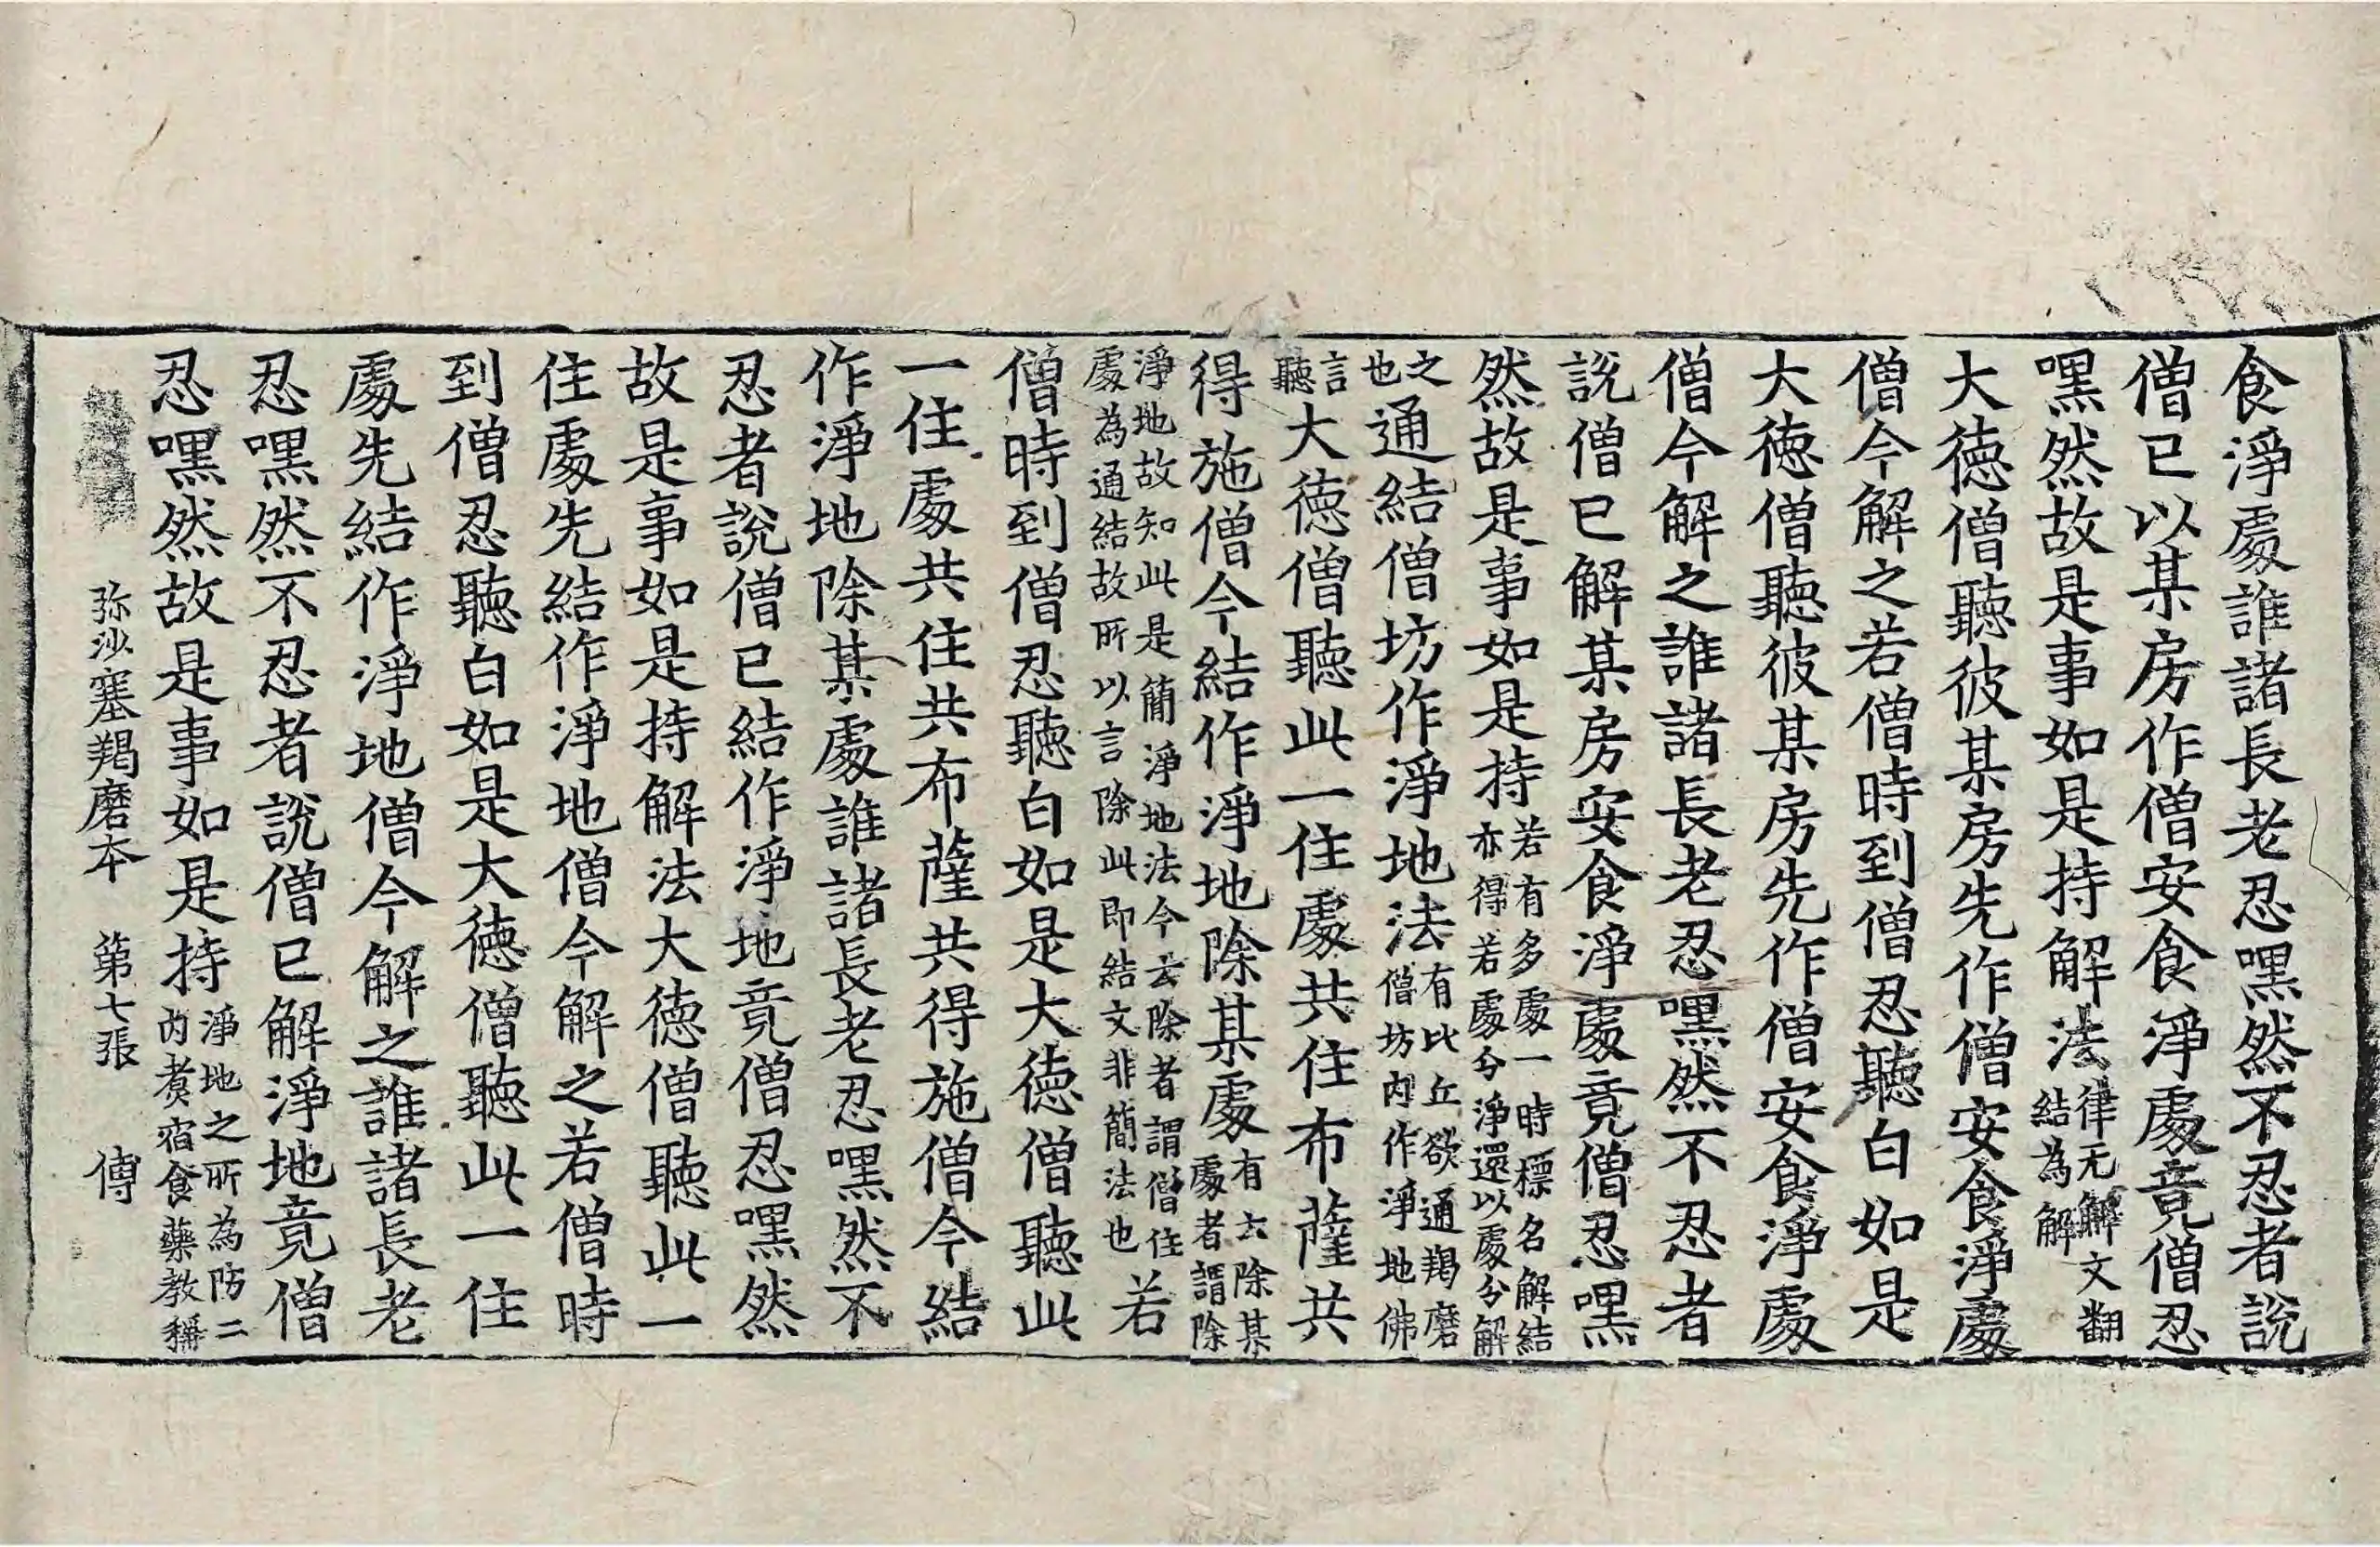 食淨處誰諸長老忍嘿然不忍者說
僧已以某房作僧安食淨處竟僧忍
嘿然故是事如是持解法律无解文翻結為解
大徳僧聽彼某房先作僧安食淨處
僧今解之若僧時到僧忍聽白如是
大徳僧聽彼某房先作僧安食淨處
僧今解之誰諸長老忍嘿然不忍者
說僧已解某房安食淨處竟僧忍嘿
然故是事如是持若有多處一時標名解結亦得若處分淨還以處分解
之也通結僧坊作淨地法有比丘欲通羯磨僧坊内作淨地佛
言聽大徳僧聽此一住處共住布薩共
得施僧今結作淨地除某處有云除某處者謂除
淨地故知此是簡淨地法今云除者謂僧住處為通結故所以言除此即結文非簡法也若
僧時到僧忍聽白如是大徳僧聽此
一住處共住共布薩共得施僧今結
作淨地除某處誰諸長老忍嘿然不
忍者說僧已結作淨地竟僧忍嘿然
故是事如是持解法大徳僧聽此一
住處先結作淨地僧今解之若僧時
到僧忍聽白如是大徳僧聽此一住
處先結作淨地僧今解之誰諸長老
忍嘿然不忍者說僧已解淨地竟僧
忍嘿然故是事如是持淨地之所為防二内煑宿食藥教稱
弥沙塞羯磨本　第七張　傳